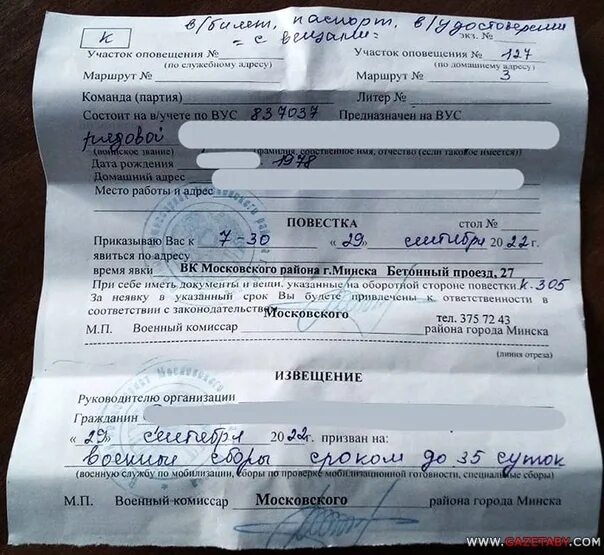 в/билет, паспорт, в/удостоверение
К
= с вещами =
экз. №
Участок оповещения №
Участок оповещения № 127
(по служебному адресу)
(по домашнему адресу)
Маршрут №
Маршрут № 3
Команда (партия)
Литер №
Состоит на в/учете по ВУС 837037 Предназначен на ВУС
рядовой
(воинское звание) (фамилия, собственное имя, отчество (если таковое имеется))
Дата рождения 1978
Домашний адрес
Место работы и адрес
ПОВЕСТКА
стол №
Приказываю Вас к 7-30 « 29 » сентября 2022 г.
явиться по адресу
время явки ВК Московского района г.Минска Бетонный проезд, 27
При себе иметь документы и вещи, указанные на оборотной стороне повестки к. 305
За неявку в указанный срок Вы будете привлечены к ответственности в
соответствии с законодательством
Московского
тел. 375 72 43
М.П. Военный комиссар района города Минска
(линия отреза)
ИЗВЕЩЕНИЕ
Руководителю организации
Гражданин
« 29 » сентября 2022 г. призван на:
военные сборы сроком до 35 суток
(военную службу по мобилизации, сборы по проверке мобилизационной готовности, специальные сборы)
М.П. Военный комиссар Московского района города Минска
WWW.GAZETABY.COM